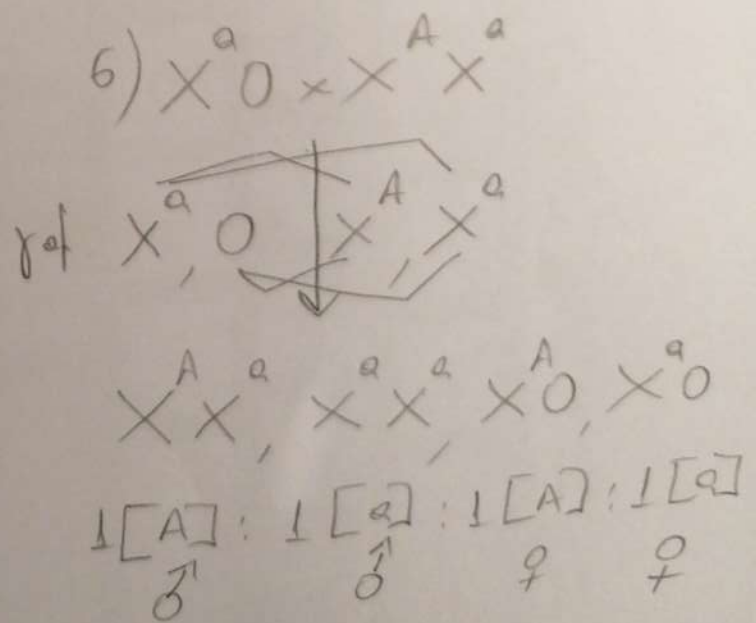 6) XᵃO × XᴬXᵃ
γαμ Xᵃ, O Xᴬ, Xᵃ
XᴬXᵃ, XᵃXᵃ, XᴬO, XᵃO
1[A] : 1[a] : 1[A] : 1[a]
♂ ♂ ♀ ♀